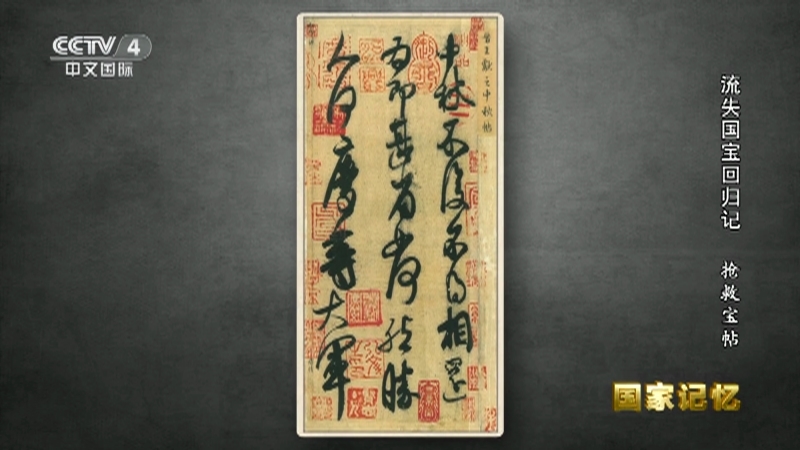 CCTV 4
中文国际
晉王獻之中秋帖
中秋不復不得相還
為即甚省如何然勝
人何慶等大軍
流失国宝回归记 抢救宝帖
国家记忆